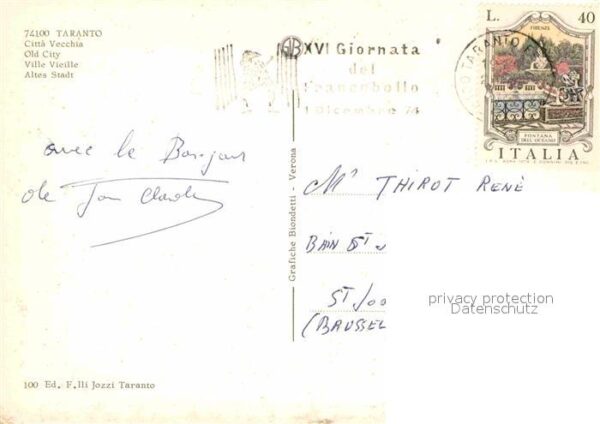 74100 TARANTO
Città Vecchia
Old City
Ville Vieille
Altes Stadt
XVI Giornata
del
Francobollo
1 Dicembre 74
TARANTO
L. 40
FIRENZE
FONTANA
DELL'OCEANO
ITALIA
avec le Bonjour
de Jean Claude
Grafiche Biondetti - Verona
Mr THIROT RENÉ
BAN ST
ST/
(BRUSSEL
privacy protection
Datenschutz
100 Ed. F.lli Jozzi Taranto